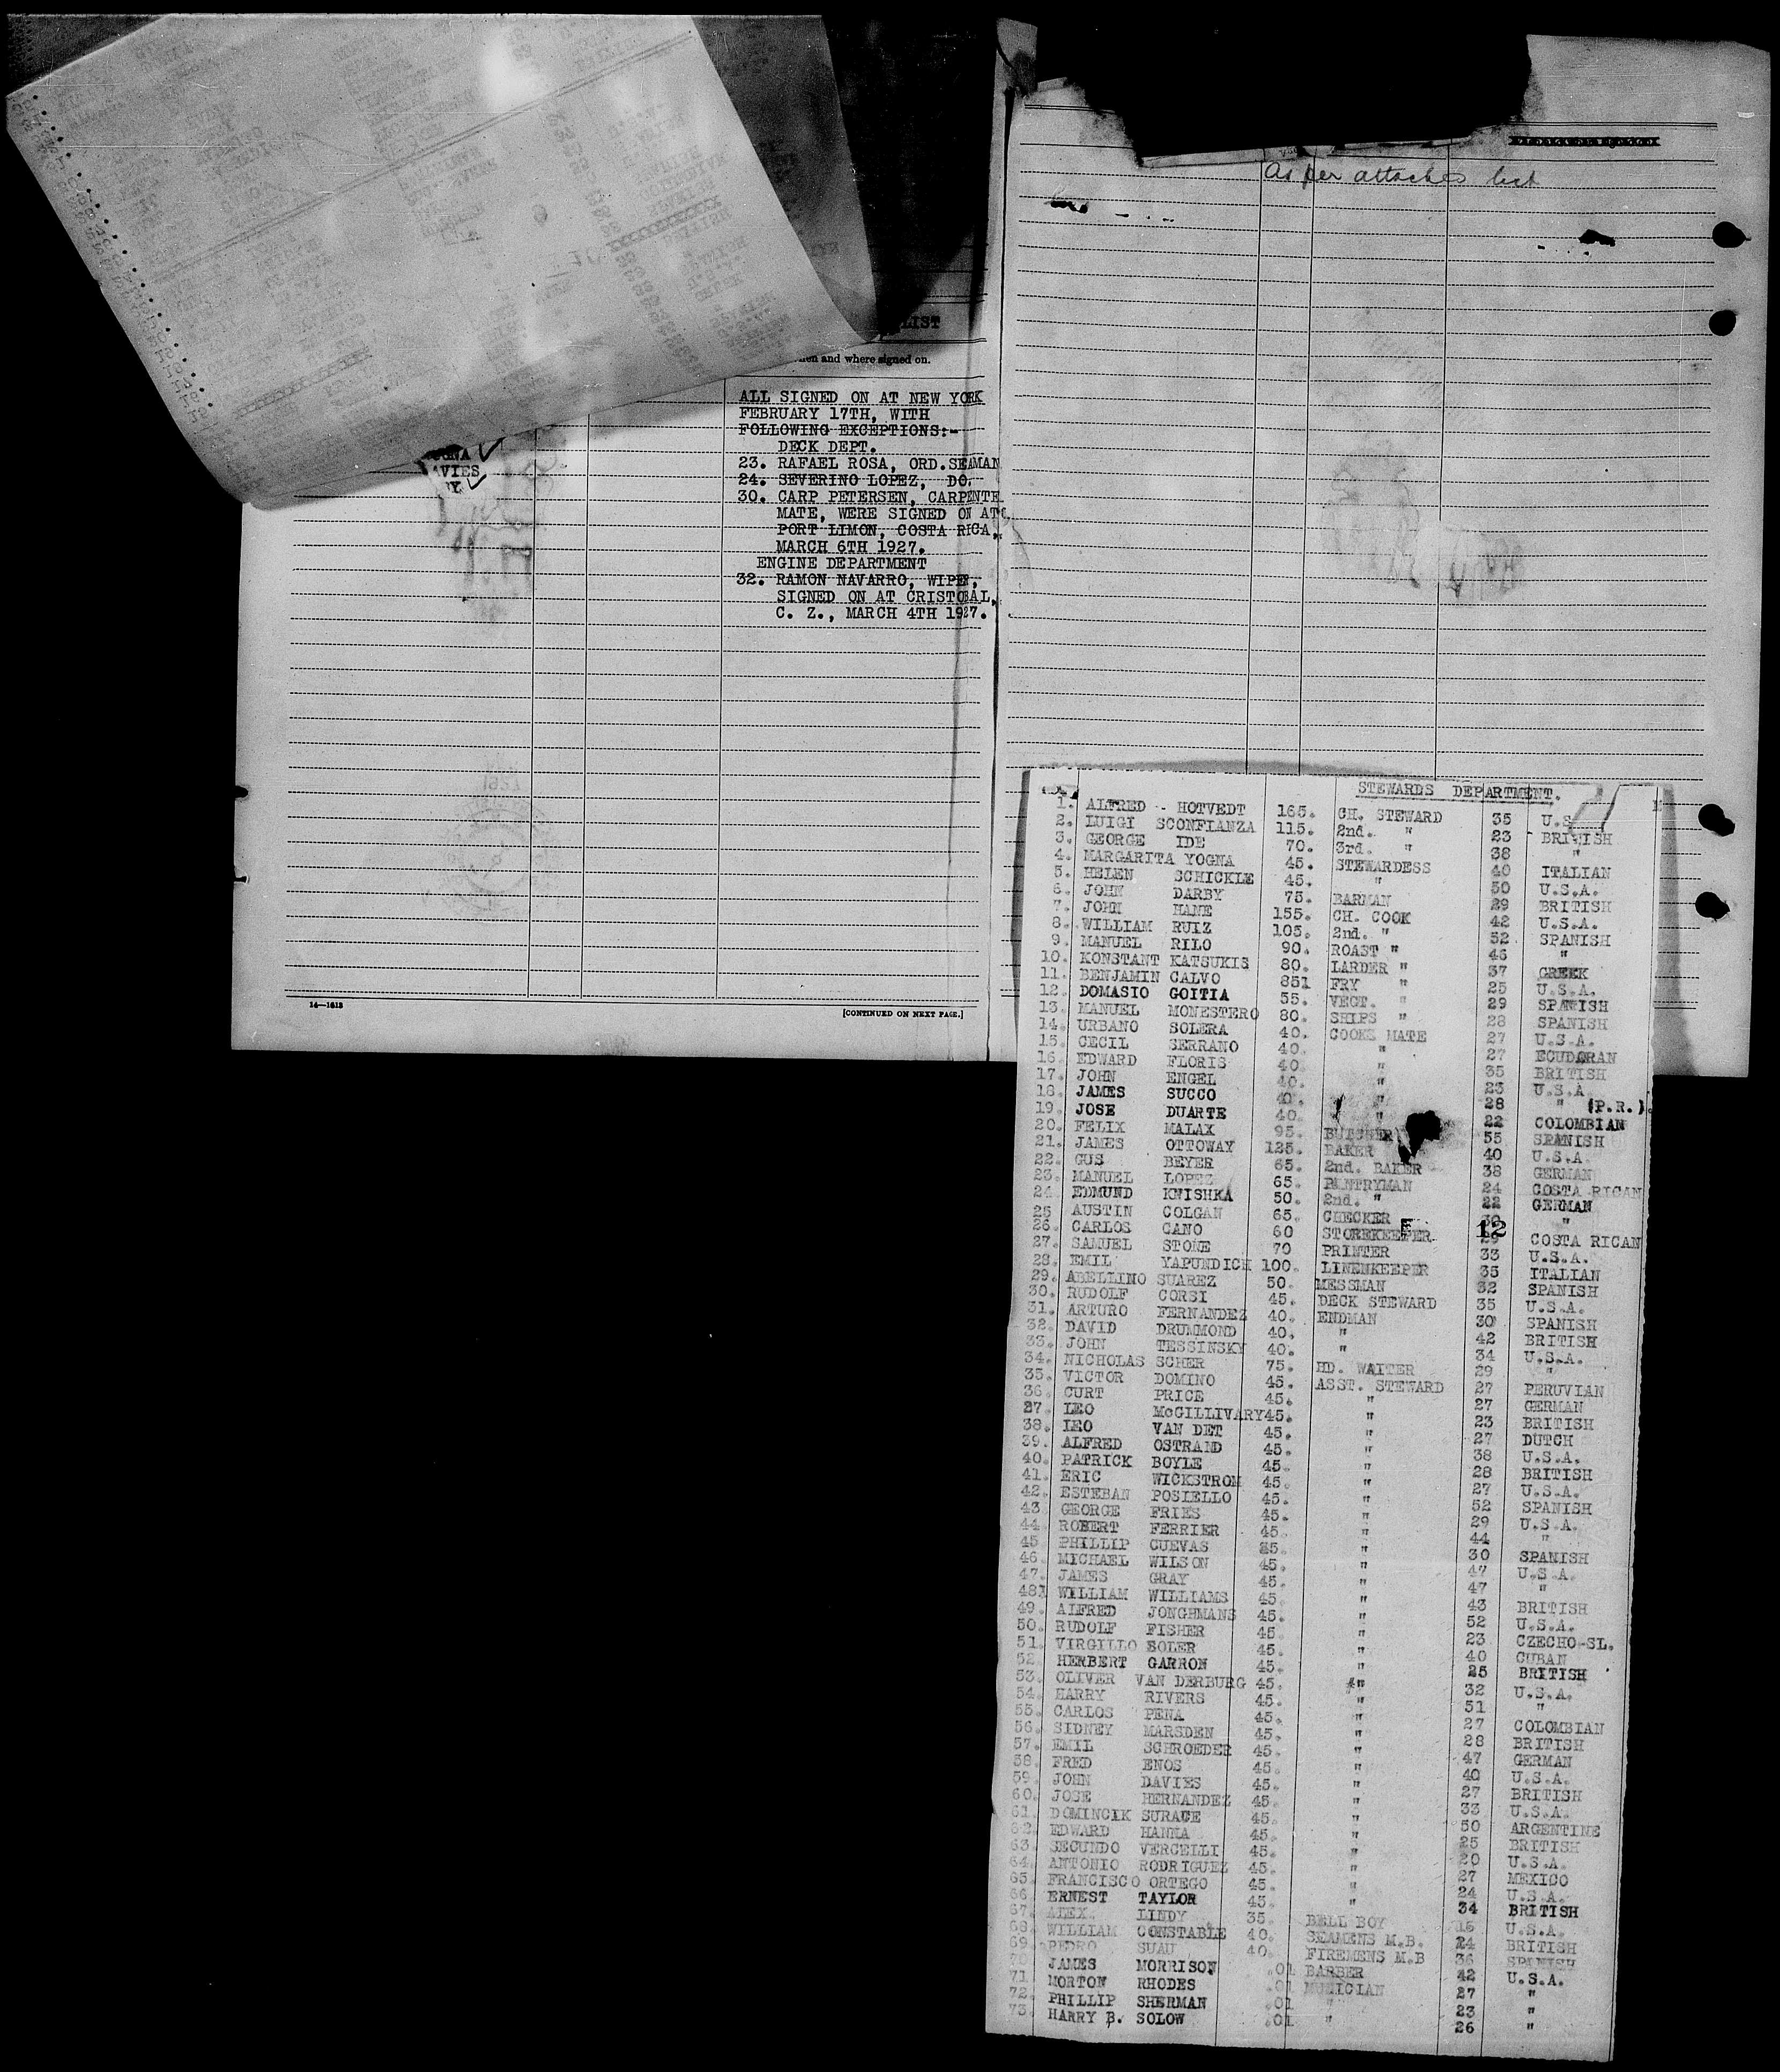 LIST
and where signed on.
ALL SIGNED ON AT NEW YORK
FEBRUARY 17TH, WITH
FOLLOWING EXCEPTIONS:-
DECK DEPT.
23. RAFAEL ROSA, ORD.SEAMAN
24. SEVERINO LOPEZ, DO.
30. CARP PETERSEN, CARPENTE
MATE, WERE SIGNED ON AT
PORT LIMON, COSTA RICA,
MARCH 6TH 1927.
ENGINE DEPARTMENT
32. RAMON NAVARRO, WIPER,
SIGNED ON AT CRISTOBAL,
C. Z., MARCH 4TH 1927.
14—1613
[CONTINUED ON NEXT PAGE.]
As per attached list
STEWARDS DEPARTMENT.
1. ALFRED - HOTVEDT 165. CH. STEWARD 35 U.S
2. LUIGI SCONFIANZA 115. 2nd. " 23 BRITISH
3. GEORGE IDE 70. 3rd. " 38 "
4. MARGARITA YOGNA 45. STEWARDESS 40 ITALIAN
5. HELEN SCHICKLE 45. " 50 U.S.A.
6. JOHN DARBY 75. BARMAN 29 BRITISH
7. JOHN HANE 155. CH. COOK 42 U.S.A.
8. WILLIAM RUIZ 105. 2nd. " 52 SPANISH
9. MANUEL RILO 90. ROAST " 46 "
10. KONSTANT KATSUKIS 80. LARDER " 37 GREEK
11. BENJAMIN CALVO 851 FRY " 25 U.S.A.
12. DOMASIO GOITIA 55. VEGT. " 29 SPANISH
13. MANUEL MONESTERO 80. SHIPS " 28 SPANISH
14. URBANO SOLERA 40. COOKS MATE 27 U.S.A.
15. CECIL SERRANO 40. " 27 ECUDORAN
16. EDWARD FLORIS 40. " 35 BRITISH
17. JOHN ENGEL 40. " 23 U.S.A
18. JAMES SUCCO 40. " 28 " (P.R.)
19. JOSE DUARTE 40. " 22 COLOMBIAN
20. FELIX MALAX 95. BUTCHER 55 SPANISH
21. JAMES OTTOWAY 125. BAKER 40 U.S.A.
22. GUS BEYER 65. 2nd. BAKER 38 GERMAN
23. MANUEL LOPEZ 65. PANTRYMAN 24 COSTA RICAN
24. EDMUND KNISHKA 50. 2nd. " 22 GERMAN
25 AUSTIN COLGAN 65. CHECKER "
26. CARLOS CANO 60 STOREKEEPER 29 COSTA RICAN
E 12
27. SAMUEL STONE 70 PRINTER 33 U.S.A.
28. EMIL YAPUNDICH 100. LINENKEEPER 35 ITALIAN
29. ABELLINO SUAREZ 50. MESSMAN 32 SPANISH
30. RUDOLF CORSI 45. DECK STEWARD 35 U.S.A.
31. ARTURO FERNANDEZ 40. ENDMAN 30 SPANISH
32. DAVID DRUMMOND 40. " 42 BRITISH
33. JOHN TESSINSKY 40. " 34 U.S.A.
34. NICHOLAS SCHER 75. HD. WAITER 29 "
35. VICTOR DOMINO 45. ASST. STEWARD 27 PERUVIAN
36. CURT PRICE 45. " 27 GERMAN
27. LEO McGILLIVARY45. " 23 BRITISH
38. LEO VAN DET 45. " 27 DUTCH
39. ALFRED OSTRAND 45. " 38 U.S.A.
40. PATRICK BOYLE 45. " 28 BRITISH
41. ERIC WICKSTROM 45. " 27 U.S.A.
42. ESTEBAN POSIELLO 45. " 52 SPANISH
43 GEORGE FRIES 45. " 29 U.S.A.
44. ROBERT FERRIER 45. " 44 "
45 PHILLIP CUEVAS 45. " 30 SPANISH
46. MICHAEL WILSON 45. " 47 U.S.A.
47. JAMES GRAY 45. " 47 "
481 WILLIAM WILLIAMS 45. " 43 BRITISH
49. ALFRED JONGHMANS 45. " 52 U.S.A.
50. RUDOLF FISHER 45. " 23 CZECHO-SL.
51. VIRGILLO SOLER 45. " 40 CUBAN
52. HERBERT GARRON 45. " 25 BRITISH
53. OLIVER VAN DERBURG 45. " 32 U.S.A.
54. HARRY RIVERS 45. " 51 "
55. CARLOS PENA 45. " 27 COLOMBIAN
56. SIDNEY MARSDEN 45. " 28 BRITISH
57. EMIL SCHROEDER 45. " 47 GERMAN
58. FRED ENOS 45. " 40 U.S.A.
59. JOHN DAVIES 45. " 27 BRITISH
60. JOSE HERNANDEZ 45. " 33 U.S.A.
61. DOMINCIK SURACE 45. " 50 ARGENTINE
62. EDWARD HANNA 45. " 25 BRITISH
63. SECUNDO VERCELLI 45. " 20 U.S.A.
64. ANTONIO RODRIGUEZ 45. " 27 MEXICO
65. FRANCISCO ORTEGO 45. " 24 U.S.A.
66. ERNEST TAYLOR 45. " 34 BRITISH
67. ALEX. LINDY 35. BELL BOY 16 U.S.A.
68. WILLIAM CONSTABLE 40. SEAMENS M.B. 24 BRITISH
69. PEDRO SUAU 40. FIREMENS M.B 36 SPANISH
70 JAMES MORRISON .01 BARBER 42 U.S.A.
71 MORTON RHODES .01 MUSICIAN 27 "
72. PHILLIP SHERMAN .01 " 23 "
73. HARRY B. SOLOW .01 " 26 "